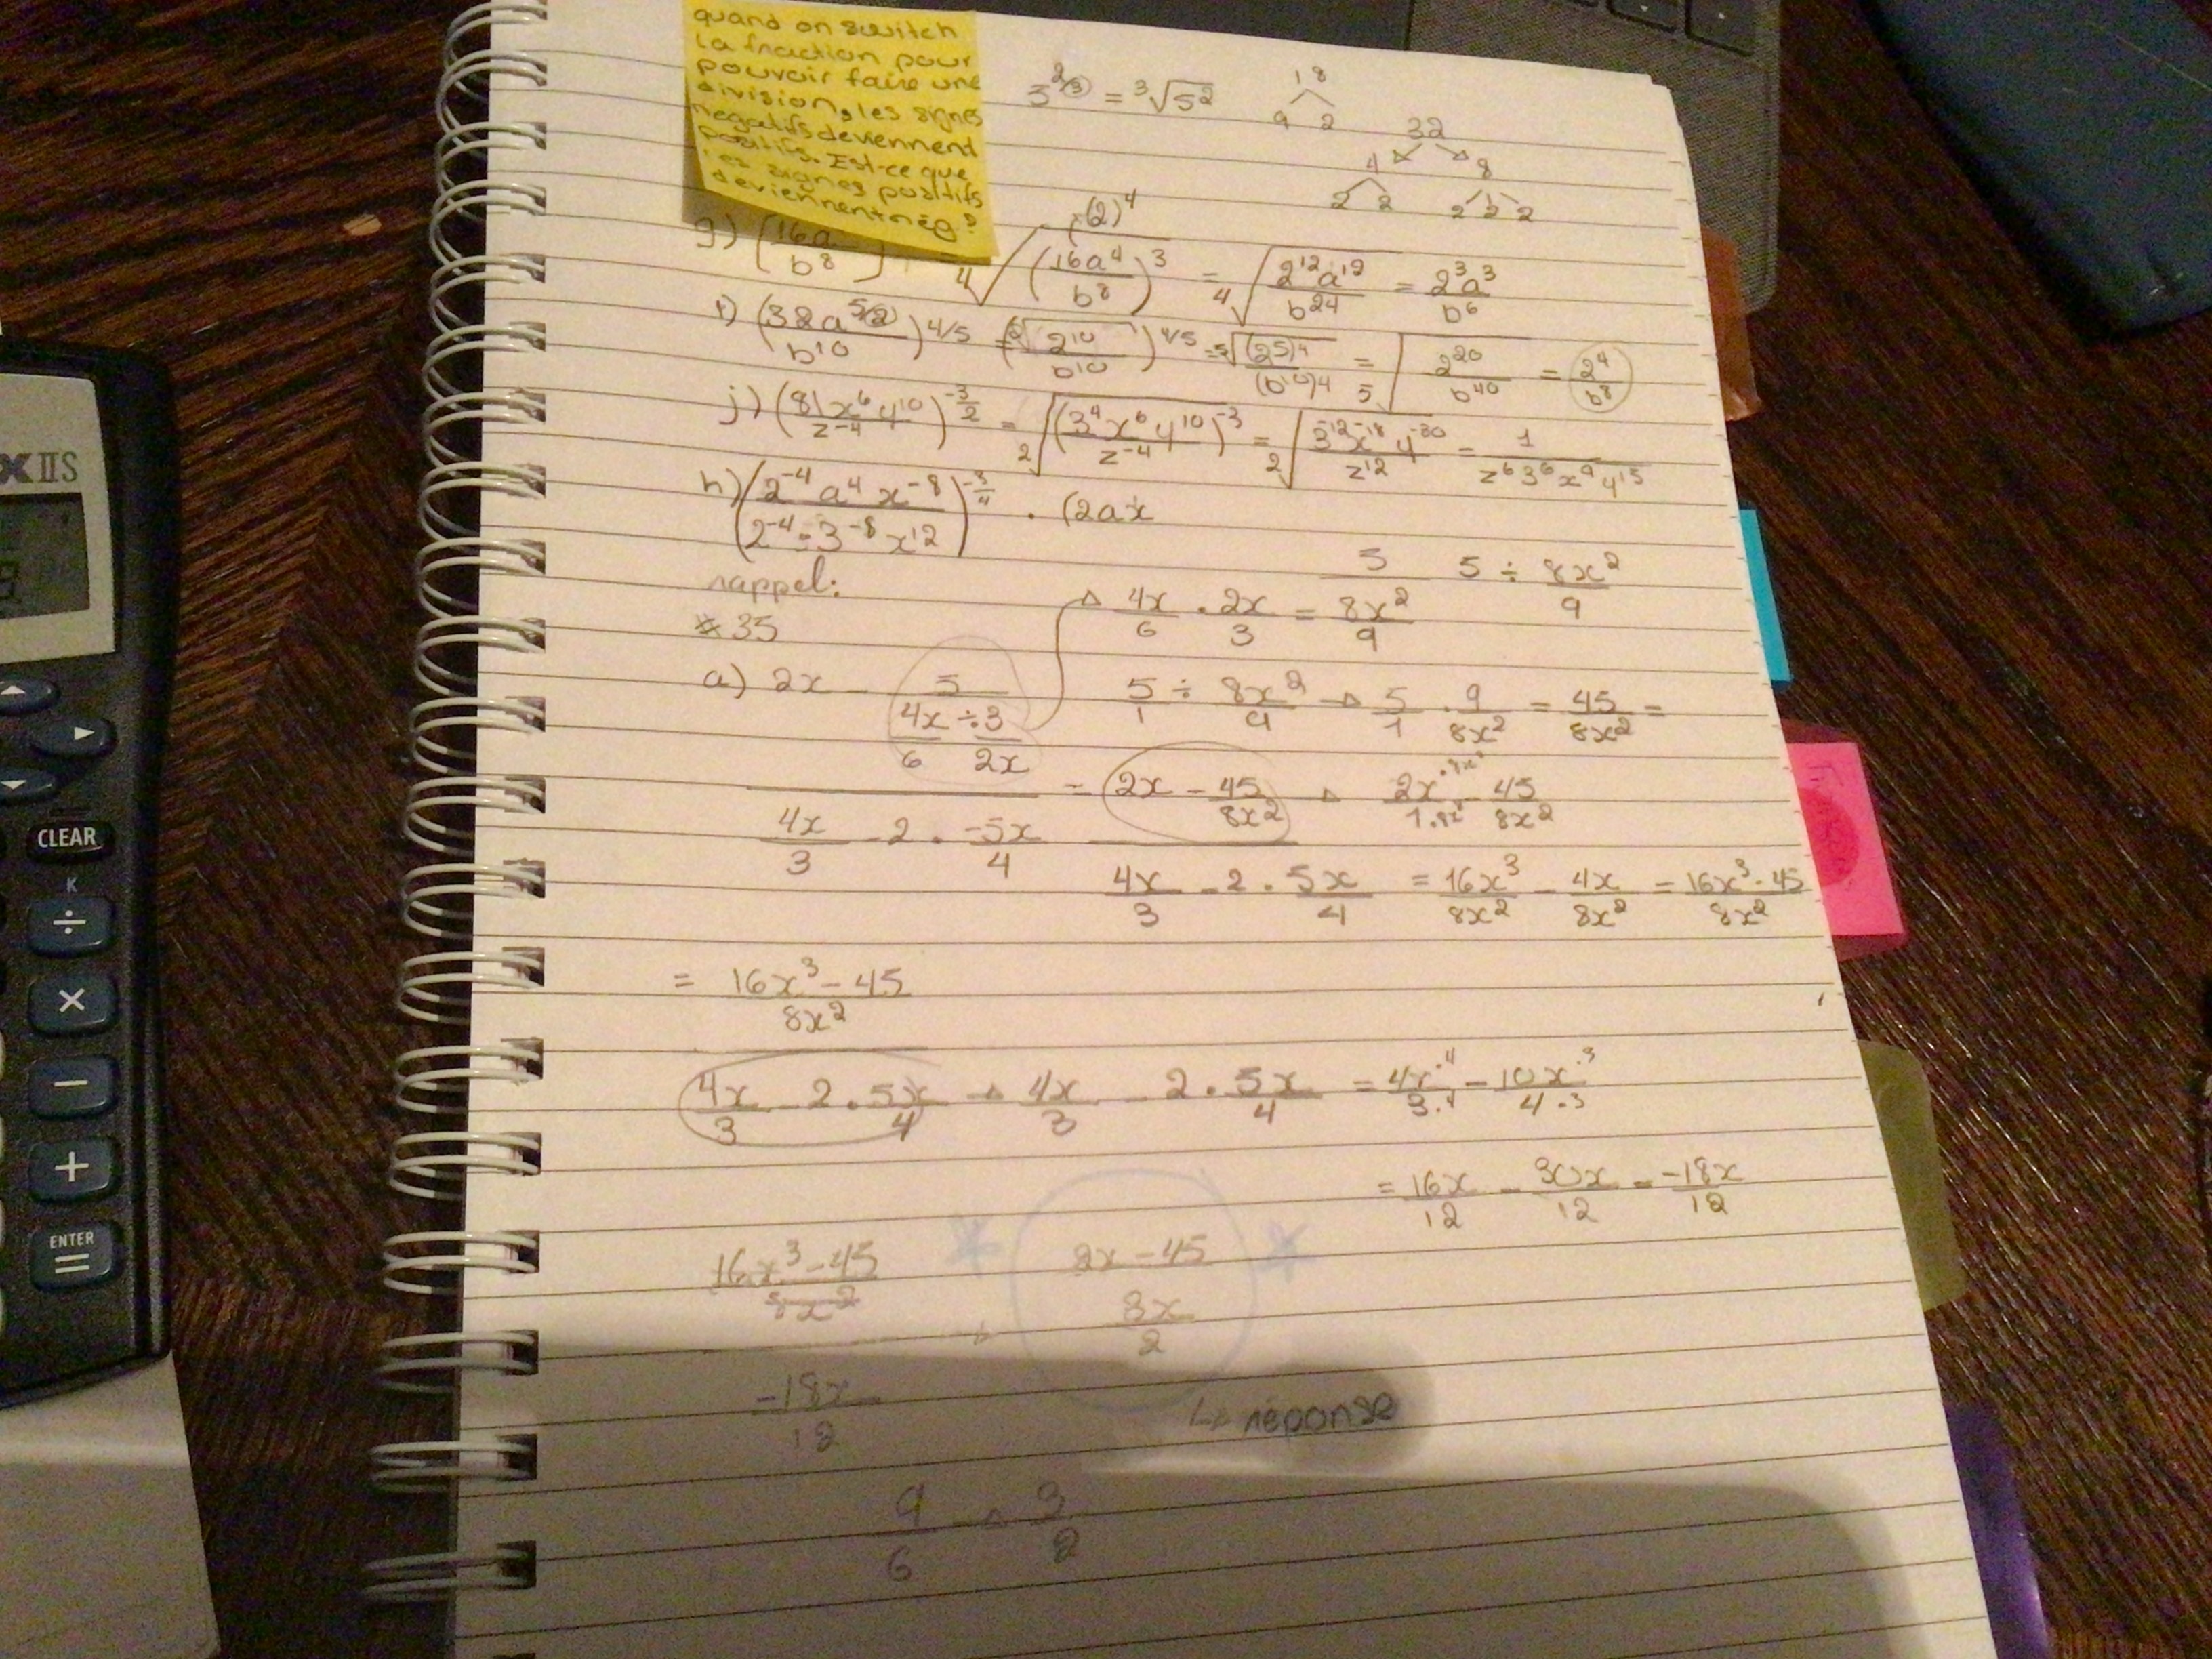 quand on switch
la fraction pour
pouvoir faire une
division, les signes
négatifs deviennent
positifs. Est-ce que
les signes positifs
deviennent nég?
3^2/3 = ³√5²
18
9 2
32
4 8
2 2 2 2 2
(2)^4
g) (16a / b^8) ⁴√(16a^4 / b^8)^3 = ⁴√(2^12 a^12 / b^24) = 2^3a^3 / b^6
i) (32a^5/2 / b^10)^4/5 = (2^10 / b^10)^4/5 = ⁵√((2^5)^4 / (b^10)^4) = ⁵√(2^20 / b^40) = 2^4 / b^8
j) (81x^6y^10 / z^-4)^-3/2 = ²√(3^4x^6y^10 / z^-4)^-3 = ²√(3^-12x^-18y^-30 / z^12) = 1 / z^6 3^6 x^9 y^15
h) (2^-4 a^4 x^-8 / 2^-4 ÷ 3^-8 x^12)^-3/4 · (2ax
rappel:
#35
4x/6 · 2x/3 = 5 / 8x²/9 5 ÷ 8x²/9
a) 2x - 5 / 4x/6 ÷ 3/2x 5/1 ÷ 8x²/9 → 5/1 · 9/8x² = 45/8x² =
= 2x - 45/8x² → 2x·8x²/1·8x² - 45/8x²
4x/3 - 2 · -5x/4
4x/3 - 2 · 5x/4 = 16x³/8x² - 4x/8x² = 16x³ - 45/8x²
= 16x³ - 45/8x²
4x/3 - 2 · 5x/4 → 4x/3 - 2 · 5x/4 = 4x·4/3·4 - 10x·3/4·3
= 16x/12 - 30x/12 = -18x/12
16x³ - 45/8x² → 2x - 45 / 8x/2
-18x/12
↳ réponse
9/6 → 3/2
X IIS
CLEAR
K
÷
×
−
+
ENTER
=